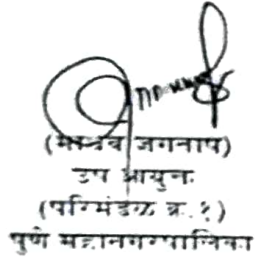 (माधव जगताप)
उप आयुक्त
(परिमंडळ क्र. १)
पुणे महानगरपालिका